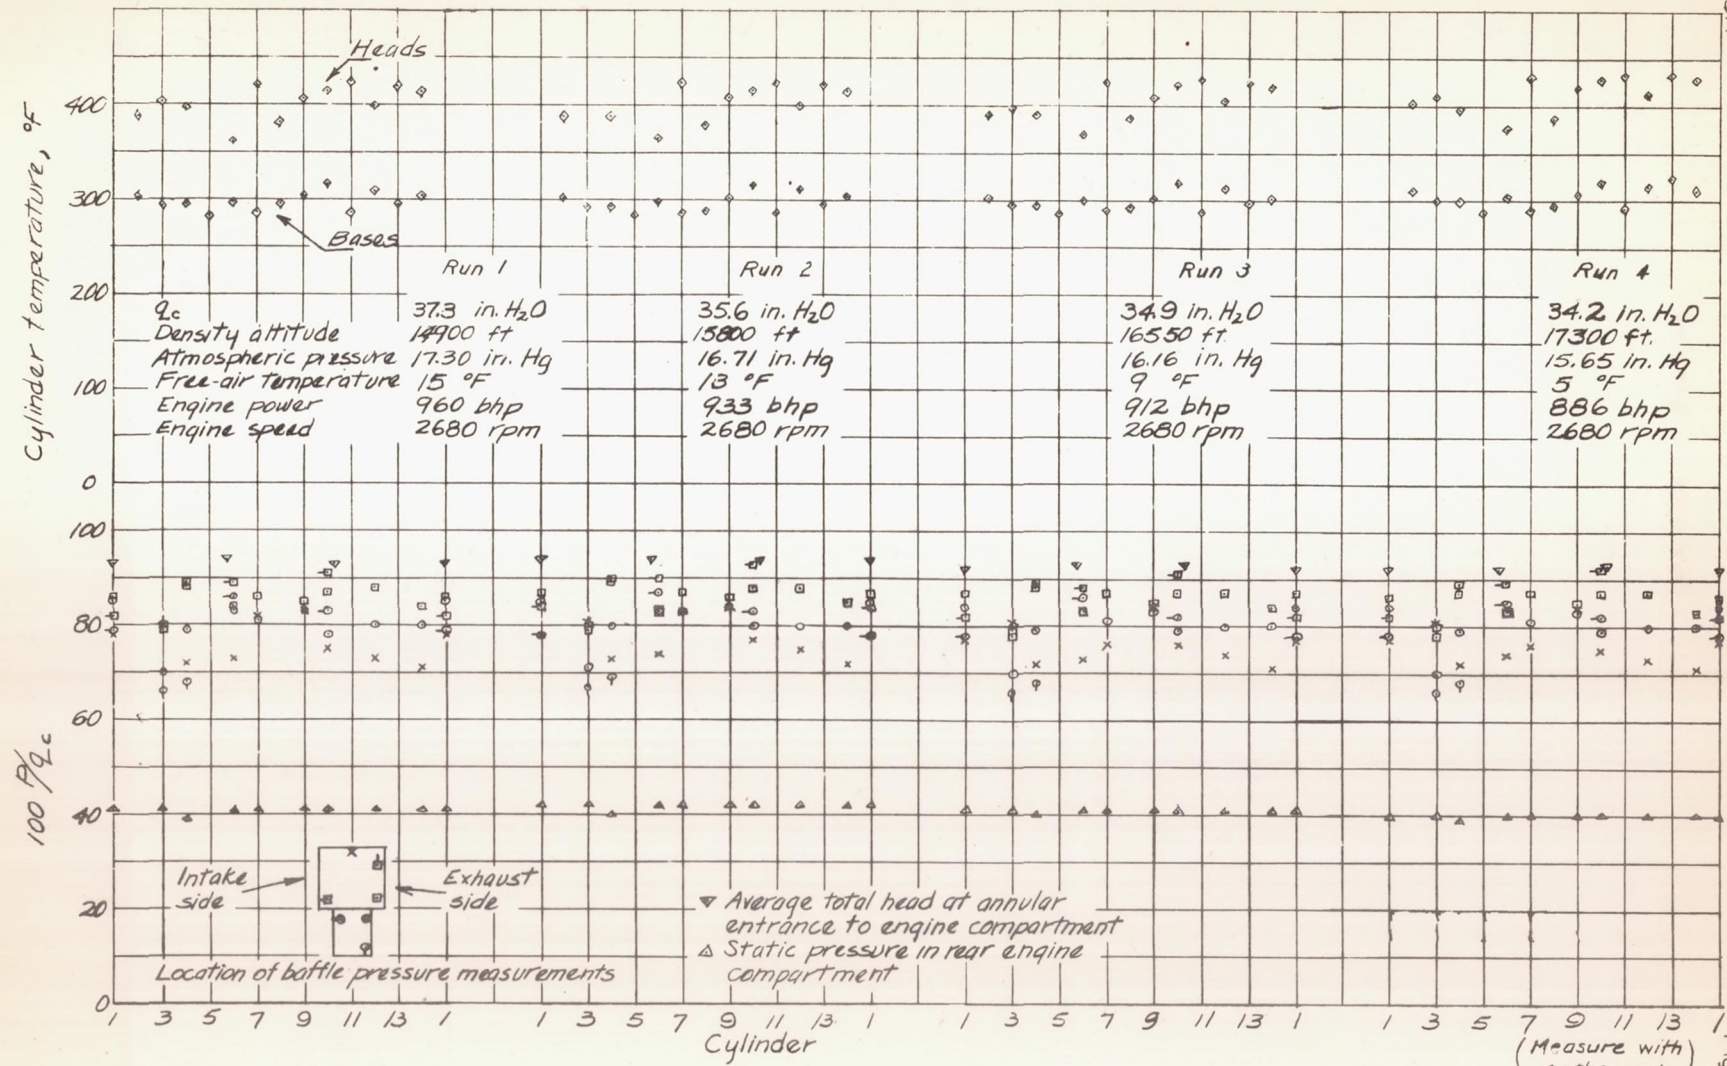 Heads
Cylinder temperature, °F
400
300
Bases
200
100
0
Run 1
Run 2
Run 3
Run 4
qc 37.3 in. H2O 35.6 in. H2O 34.9 in. H2O 34.2 in. H2O
Density altitude 14900 ft 15800 ft 16550 ft. 17300 ft.
Atmospheric pressure 17.30 in. Hg 16.71 in. Hg 16.16 in. Hg 15.65 in. Hg
Free-air temperature 15 °F 13 °F 9 °F 5 °F
Engine power 960 bhp 933 bhp 912 bhp 886 bhp
Engine speed 2680 rpm 2680 rpm 2680 rpm 2680 rpm
100 P/qc
100
80
60
40
20
0
Intake
side
Exhaust
side
Location of baffle pressure measurements
Average total head at annular
entrance to engine compartment
Static pressure in rear engine
compartment
1 3 5 7 9 11 13 1 1 3 5 7 9 11 13 1 1 3 5 7 9 11 13 1 1 3 5 7 9 11 13 1
Cylinder
(Measure with)